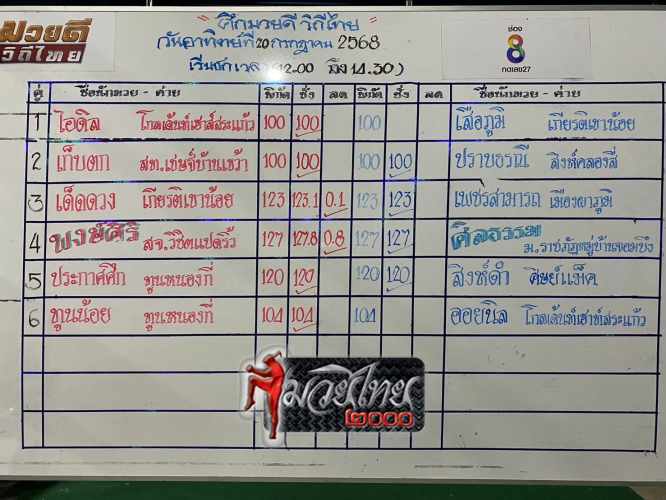 มวยดี
วิถีไทย
"ศึกมวยดี วิถีไทย"
วันอาทิตย์ที่ 20 กรกฎาคม 2568
(เริ่มชกเวลา 12.00 ถึง 14.30)
ช่อง
8
กดเลข27
คู่ ชื่อนักมวย - ค่าย พิกัด ชั่ง ลด พิกัด ชั่ง ลด ชื่อนักมวย - ค่าย
1 ไอดิล โกลเด้นท์เฮาส์สระแก้ว 100 100 100 เสือภูมิ เกียรติเขาน้อย
2 เก็บตก สท.เชษฐ์บ้านเขว้า 100 100 100 100 ปราบธรณี สิงห์คลองสี่
3 เด็ดดวง เกียรติเขาน้อย 123 123.1 0.1 123 123 เพชรสามารถ เมืองผาภูมิ
4 พงษ์ศิริ สจ.วิชิตแปดริ้ว 127 127.8 0.8 127 127 ศิลธรรม ม.ราชภัฏหมู่บ้านจอมบึง
5 ประกาศศึก ทูนหนองกี่ 120 120 120 120 สิงห์ดำ ศิษย์แม็ค
6 ทูนน้อย ทูนหนองกี่ 104 104 104 ออยนิล โกลเด้นท์เฮาท์สระแก้ว
มวยไทย
๒๐๐๐